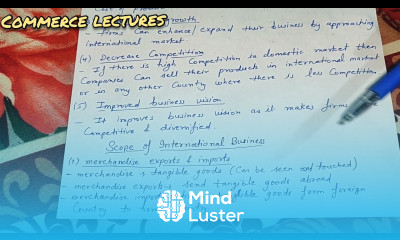 COMMERCE LECTURES
Cost of
growth
- firms can enhance/expand their business by approaching
international market.
(4) Decrease Competition
- If there is high Competition in domestic market then
Companies Can sell their products in international market
or in any other Country where there is less Competition.
(5) Improved business vision
- It improves business vision as it makes firms
Competitive & diversified.
Scope of International Business
(1) merchandise exports & imports
- merchandise is tangible goods (Can be seen and touched)
- merchandise exports send tangible goods abroad
- merchandise goods from foreign
Country to
Mind
Luster